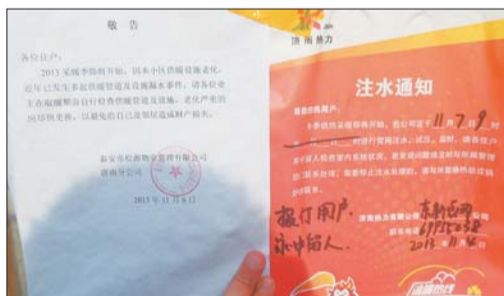 敬 告
各位住户：
2013 采暖季即将开始，因本小区供暖设施老化，
近年已发生多起供暖管道及设施漏水事件，请各位业
主在取暖期前自行检查供暖管道及设施，老化严重的
应尽快更换，以避免给自己及邻居造成财产损失。
泰安市松源物业管理有限公司
济南分公司
2013 年 11 月 6 日
济南热力
注水通知
尊敬的热用户：
冬季供热采暖即将开始，我公司定于11月7日9时
时进行管网注水、试压。届时，请各住户
家中留人检查室内系统状况，若发现问题请及时与所属管理
报停用户
家中留人.
济南热力有限公司 东新店网
联系电话 69955038
2013 年 11 月 6 日
温暖热线